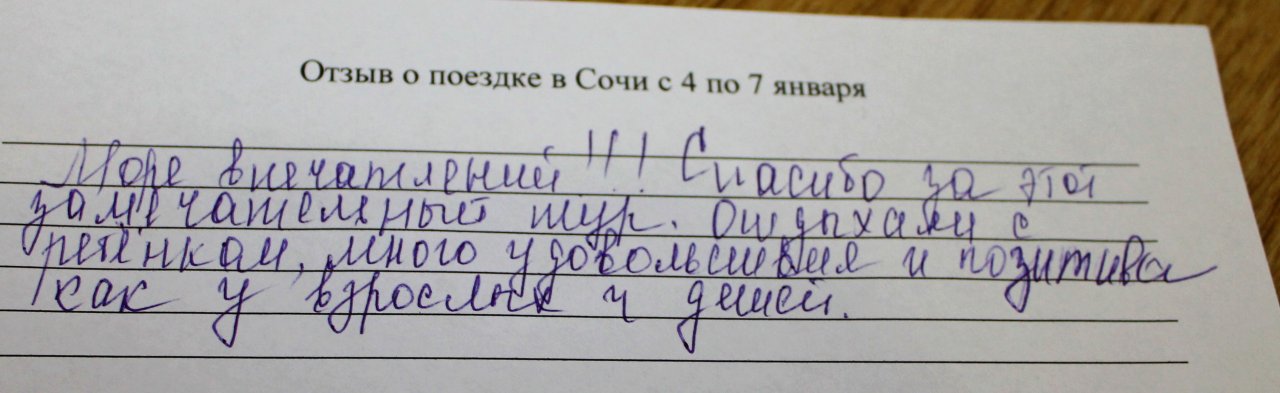 Отзыв о поездке в Сочи с 4 по 7 января
Море впечатлений!!! Спасибо за этот
замечательный тур. Отдыхали с
ребёнком, много удовольствия и позитива
как у взрослых и детей.